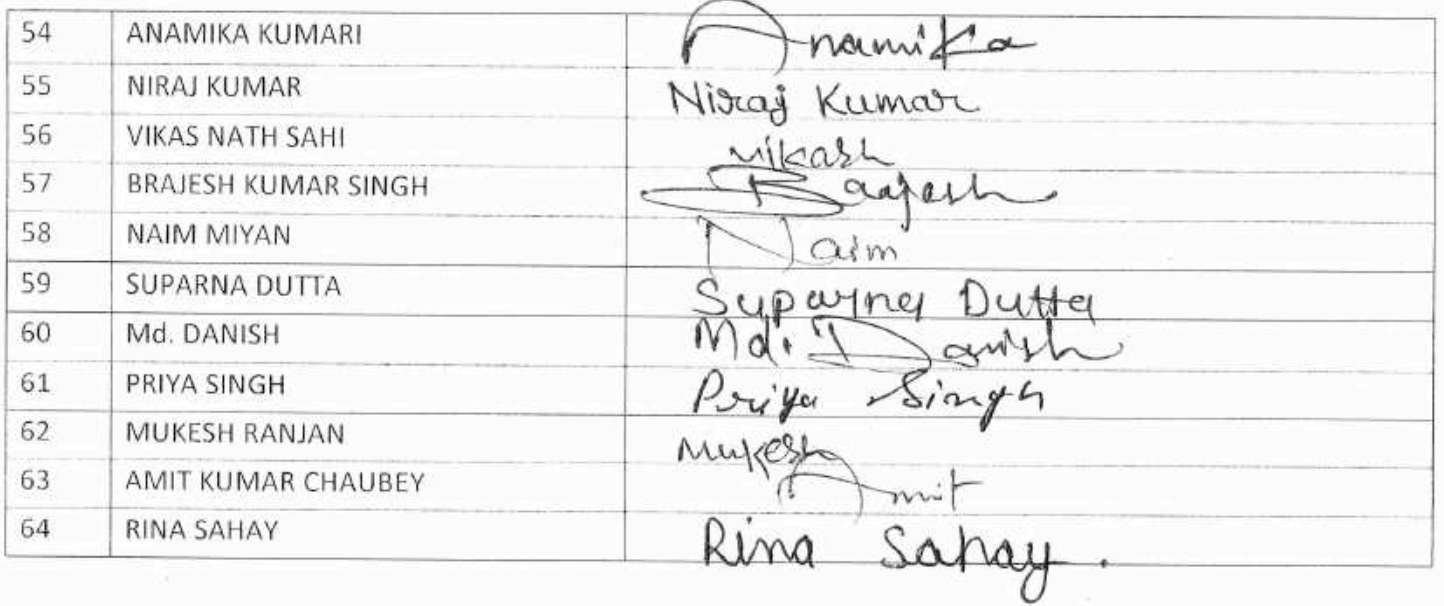 54 ANAMIKA KUMARI Anamika
55 NIRAJ KUMAR Niraj Kumar
56 VIKAS NATH SAHI Vikash
57 BRAJESH KUMAR SINGH Brajesh
58 NAIM MIYAN Naim
59 SUPARNA DUTTA Suparna Dutta
60 Md. DANISH Md. Danish
61 PRIYA SINGH Priya Singh
62 MUKESH RANJAN Mukesh
63 AMIT KUMAR CHAUBEY Amit
64 RINA SAHAY Rina Sahay.